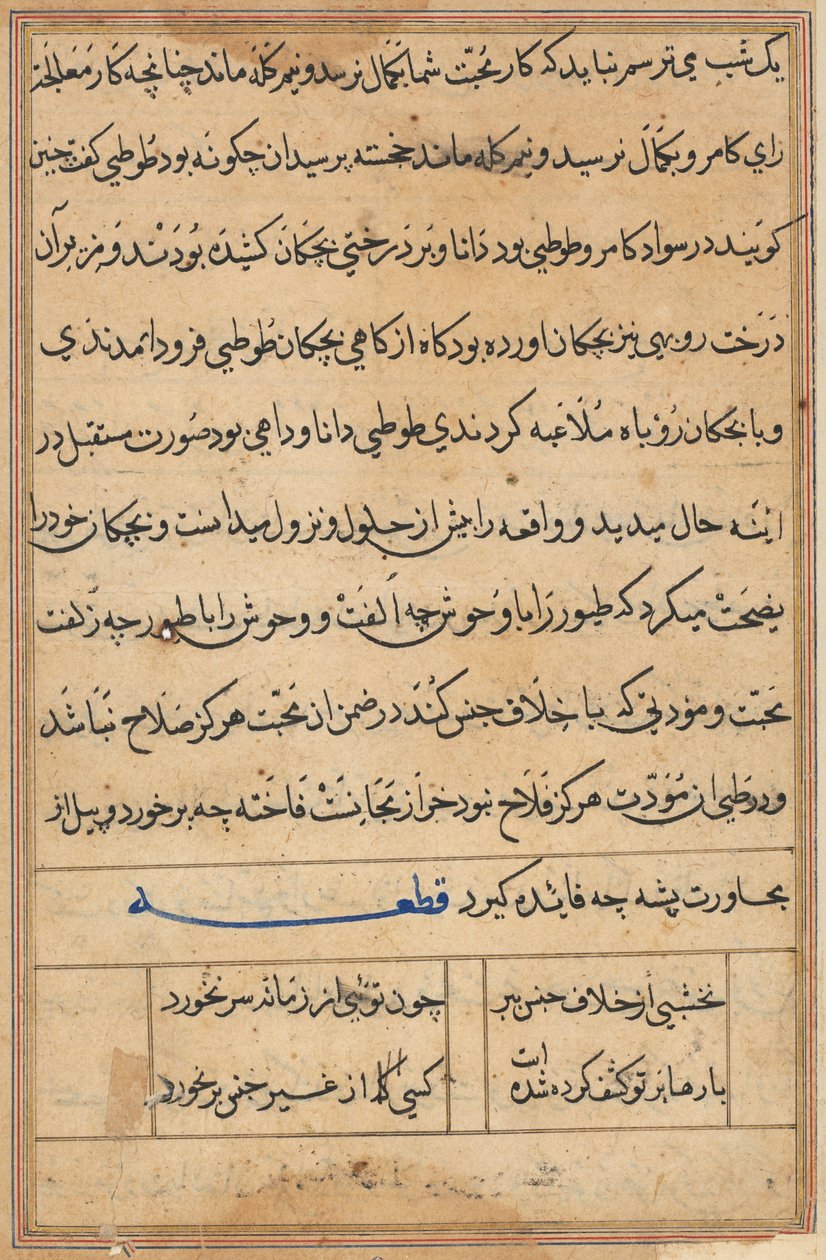 یک شب می ترسم نباید که کار محبّت شما بکمال نرسد و نیم کله ماند چنانچه کار معالجت
رای کامرو بکمال نرسید و نیم کله ماند خجسته پرسید ان چکونه بود طوطی کفت چنین
کویند در سواد کامرو طوطیی بود دانا و بر درختی بچکان کشیده بودند و بر آن
درخت روبهی نیز بچکان اورده بود کاه از کاهی بچکان طوطیی فرود امدندی
و با بچکان روباه ملاعبه کردندی طوطیی دانا و داهی بود صورت مستقبل در
اینه حال میدید و واقعه را پیش از حلول و نزول میدانست و بچکان خود را
نصحت میکرد که طیور را با وحوش چه الفت و وحوش را با طیور چه زلفت
محبّت و مودتی که با خلاف جنس کند در ضمن ان محبّت هرکز صلاح نباشد
و در طی ان مودّت هرکز فلاح نبود خر از مجانست فاخته چه بر خورد و پیل از
بحاورت پشه چه فائده کیرد قطعه
نخشبی از خلاف جنس ببر چون توئی از زمانه سر نخورد
بارها بر تو کشف کرده شده است کسی از غیر جنس بر نخورد